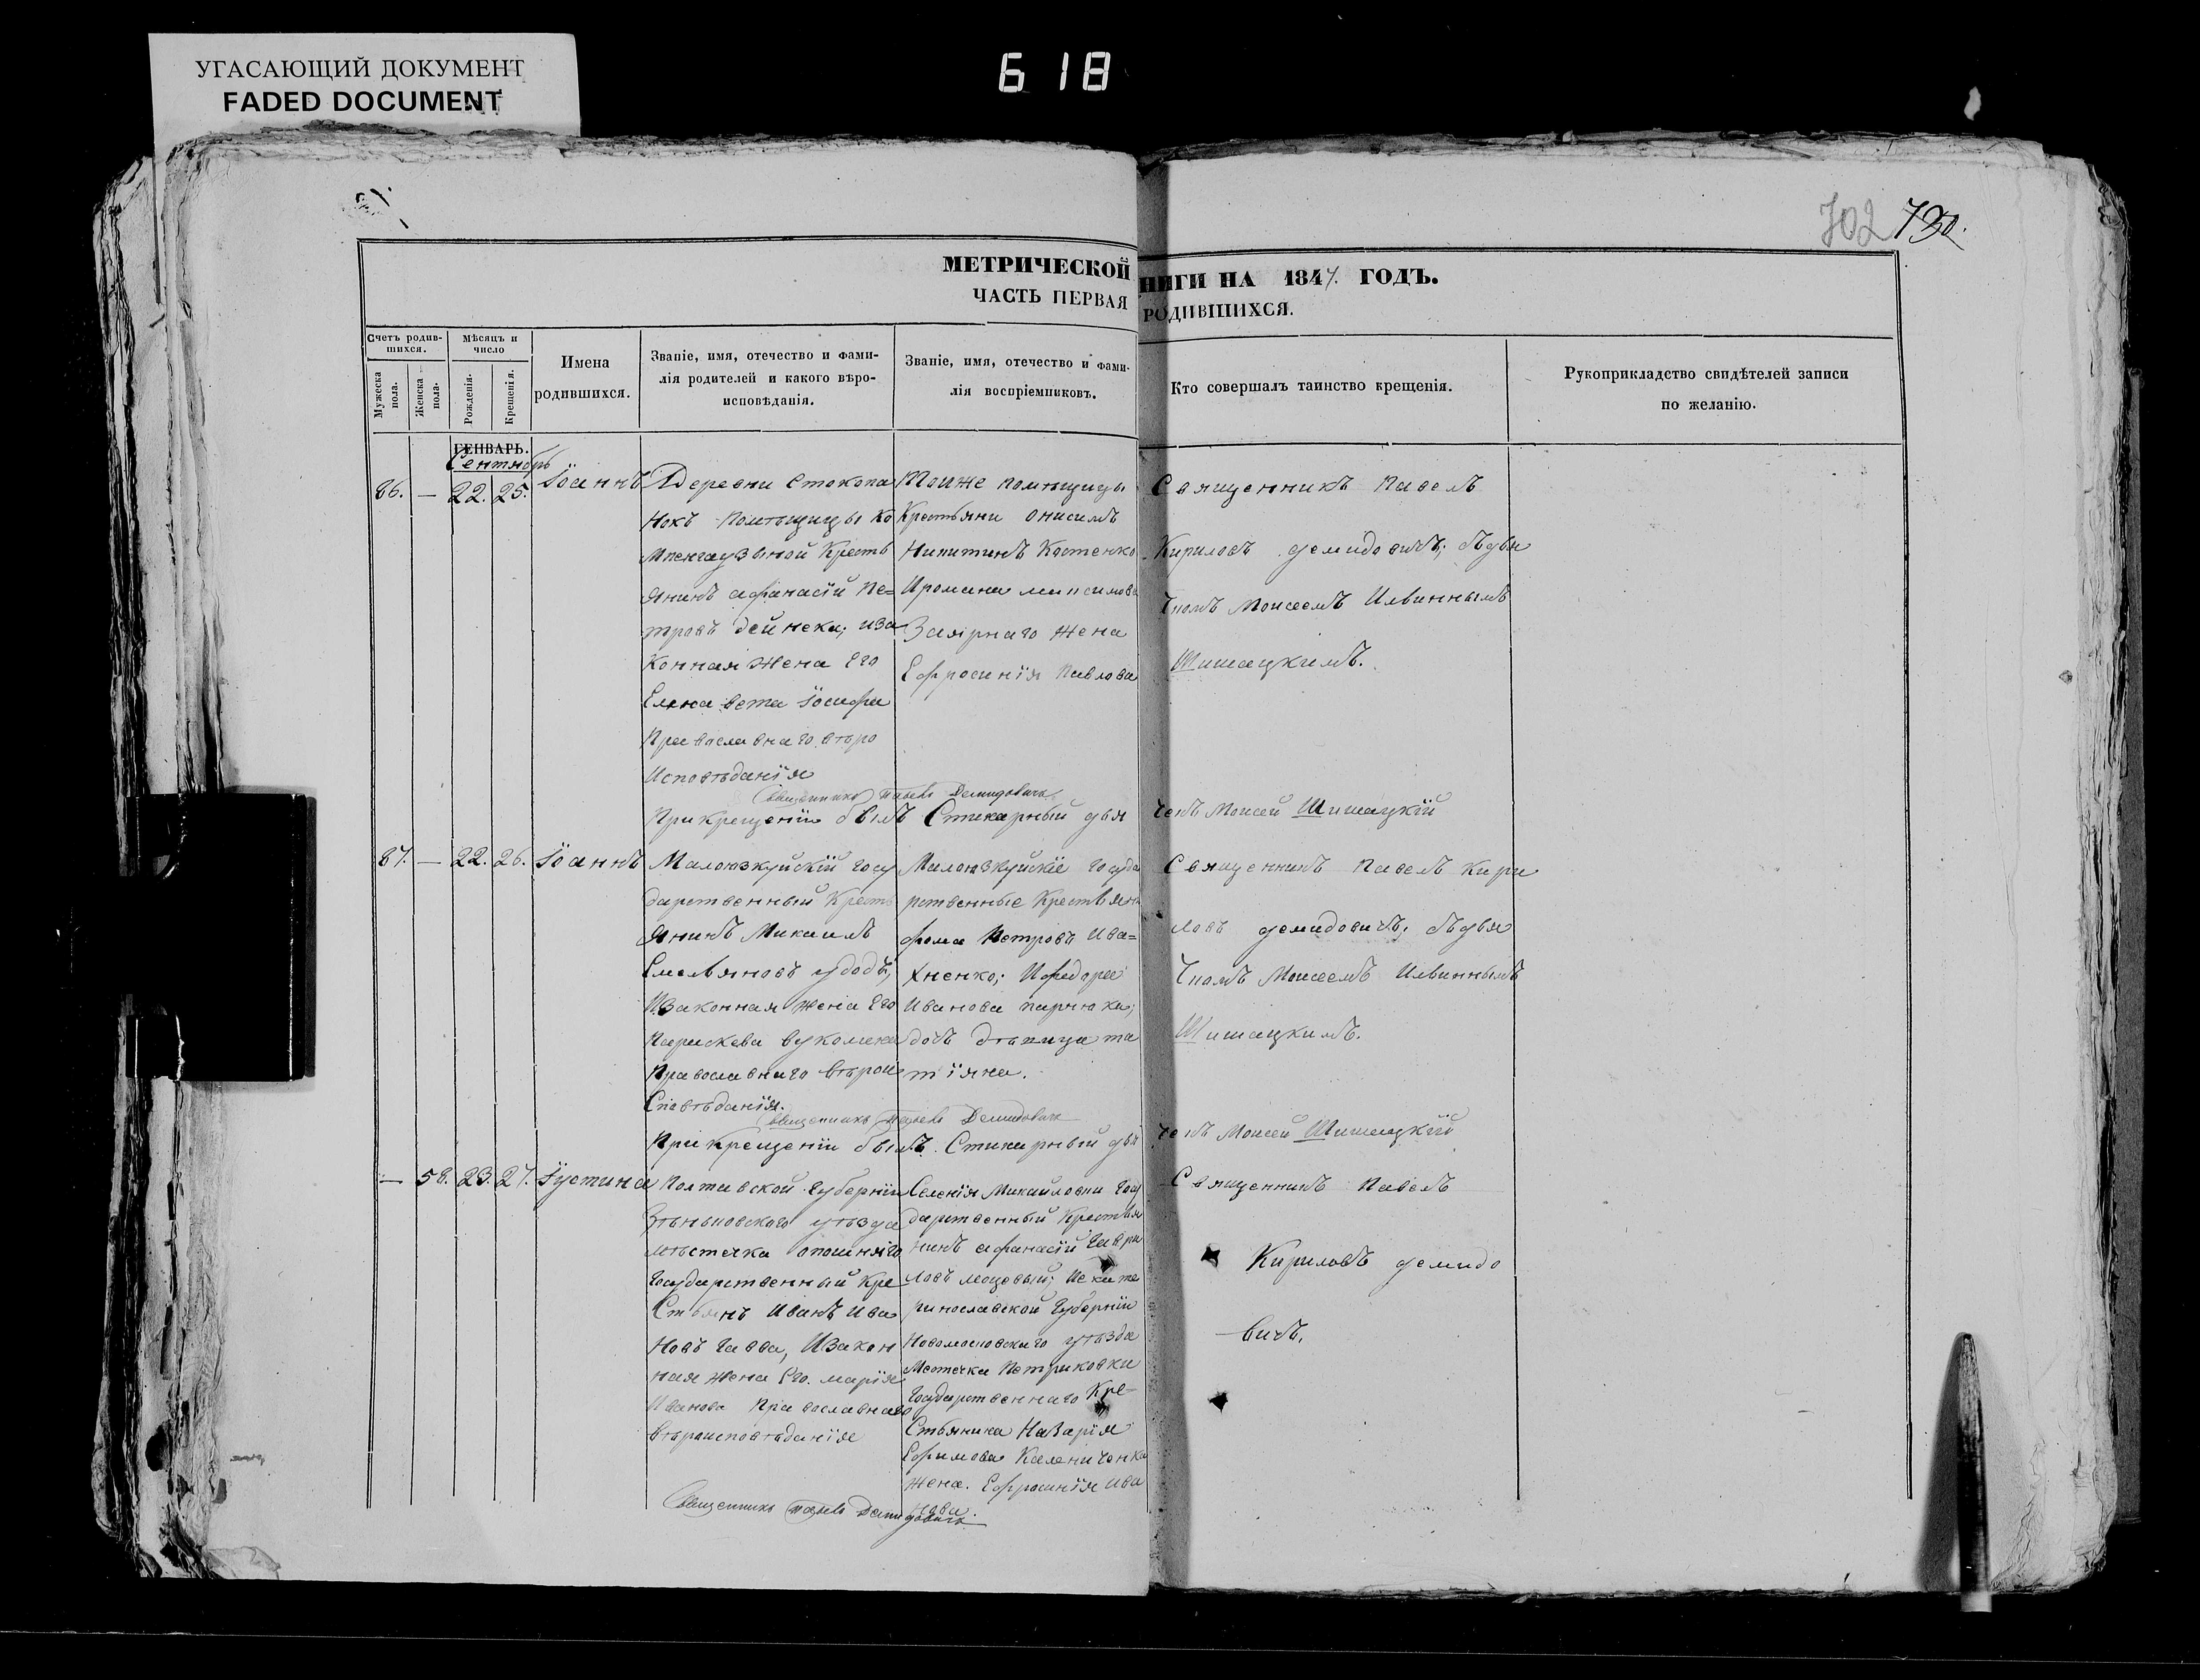 УГАСАЮЩИЙ ДОКУМЕНТ
FADED DOCUMENT
618
702 730.
МЕТРИЧЕСКОЙ
НИГИ НА 1847. ГОДЪ.
ЧАСТЬ ПЕРВАЯ
РОДИВШИХСЯ.
Счетъ родив-
шихся.
Мужеска
пола.
Женска
пола.
Мѣсяцъ и
число
Рожденія.
Крещенія.
Имена
родившихся.
Званіе, имя, отечество и фами-
лія родителей и какого вѣро-
исповѣданія.
Званіе, имя, отечество и фами-
лія воспріемниковъ.
Кто совершалъ таинство крещенія.
Рукоприкладство свидѣтелей записи
по желанію.
ГЕНВАРЬ.
Сентябрь
86. — 22. 25. Іоаннъ
Деревни Стокопа
нокъ помѣщицы Ко
Кресть
янинъ Афанасій Пе=
тровъ Дейнека; иза
конная жена Его
Елисавета Іосифа
Православнаго вѣро
Исповѣданія
Тойже помѣщицы
Крестьяни Онисимъ
Никитинъ Костенко
Ироммана Максимова
Заярнаго жена
Ефросинія Павлова
Священникъ Павелъ
Кириловъ Демидовичъ; съ дья
чкомъ Моисеемъ Ильиннымъ
Шишацкимъ.
Священникъ Павелъ Демидовичъ
При крещеніи былъ Стихарный дья
чекъ Моисей Шишацкій
87. — 22. 26. Іоаннъ
Малоюзкуйскій госу
дарственный Кресть
янинъ Михаилъ
Емельяновъ Удодъ,
Изаконная жена Его
Параскева Вуколова
Православнаго вѣрои
Сповѣданія.
Малоюзкуйскіе госуда
рственные Крестьяне
Фома Петровъ Ива=
хненко; Ифедора
Иванова парнюка;
дочь дѣвица та
тіяна.
Священникъ Павелъ Кири
ловъ Демидовичъ; съ дья
чкомъ Моисеемъ Ильиннымъ
Шишацкимъ.
Священникъ Павелъ Демидовичъ
При крещеніи былъ Стихарный дья
чекъ Моисей Шишацкій
— 58. 23. 27. Іустина
Полтавской Губерніи
Зѣньковскаго уѣзда
мѣстечка опошняго
Государственный Кре
Стьянъ Иванъ Ива
новъ Гавва, Изакон
ная жена Его. Марія
Иванова Православнаго
вѣроисповѣданія
Селенія Михайловки Госу
дарственный Крестья
нинъ Афанасій Гаври
ловъ Иекате
ринославской Губерніи
Новомосковскаго уѣзда
Местечка Петриковки
Государственнаго Кре=
Стьянина Назарія
Ефимова Калениченка
жена. Ефросинія Ива
нова.
Священникъ Павелъ
Кириловъ Демидо
вичъ.
Священникъ Павелъ Демидовичъ